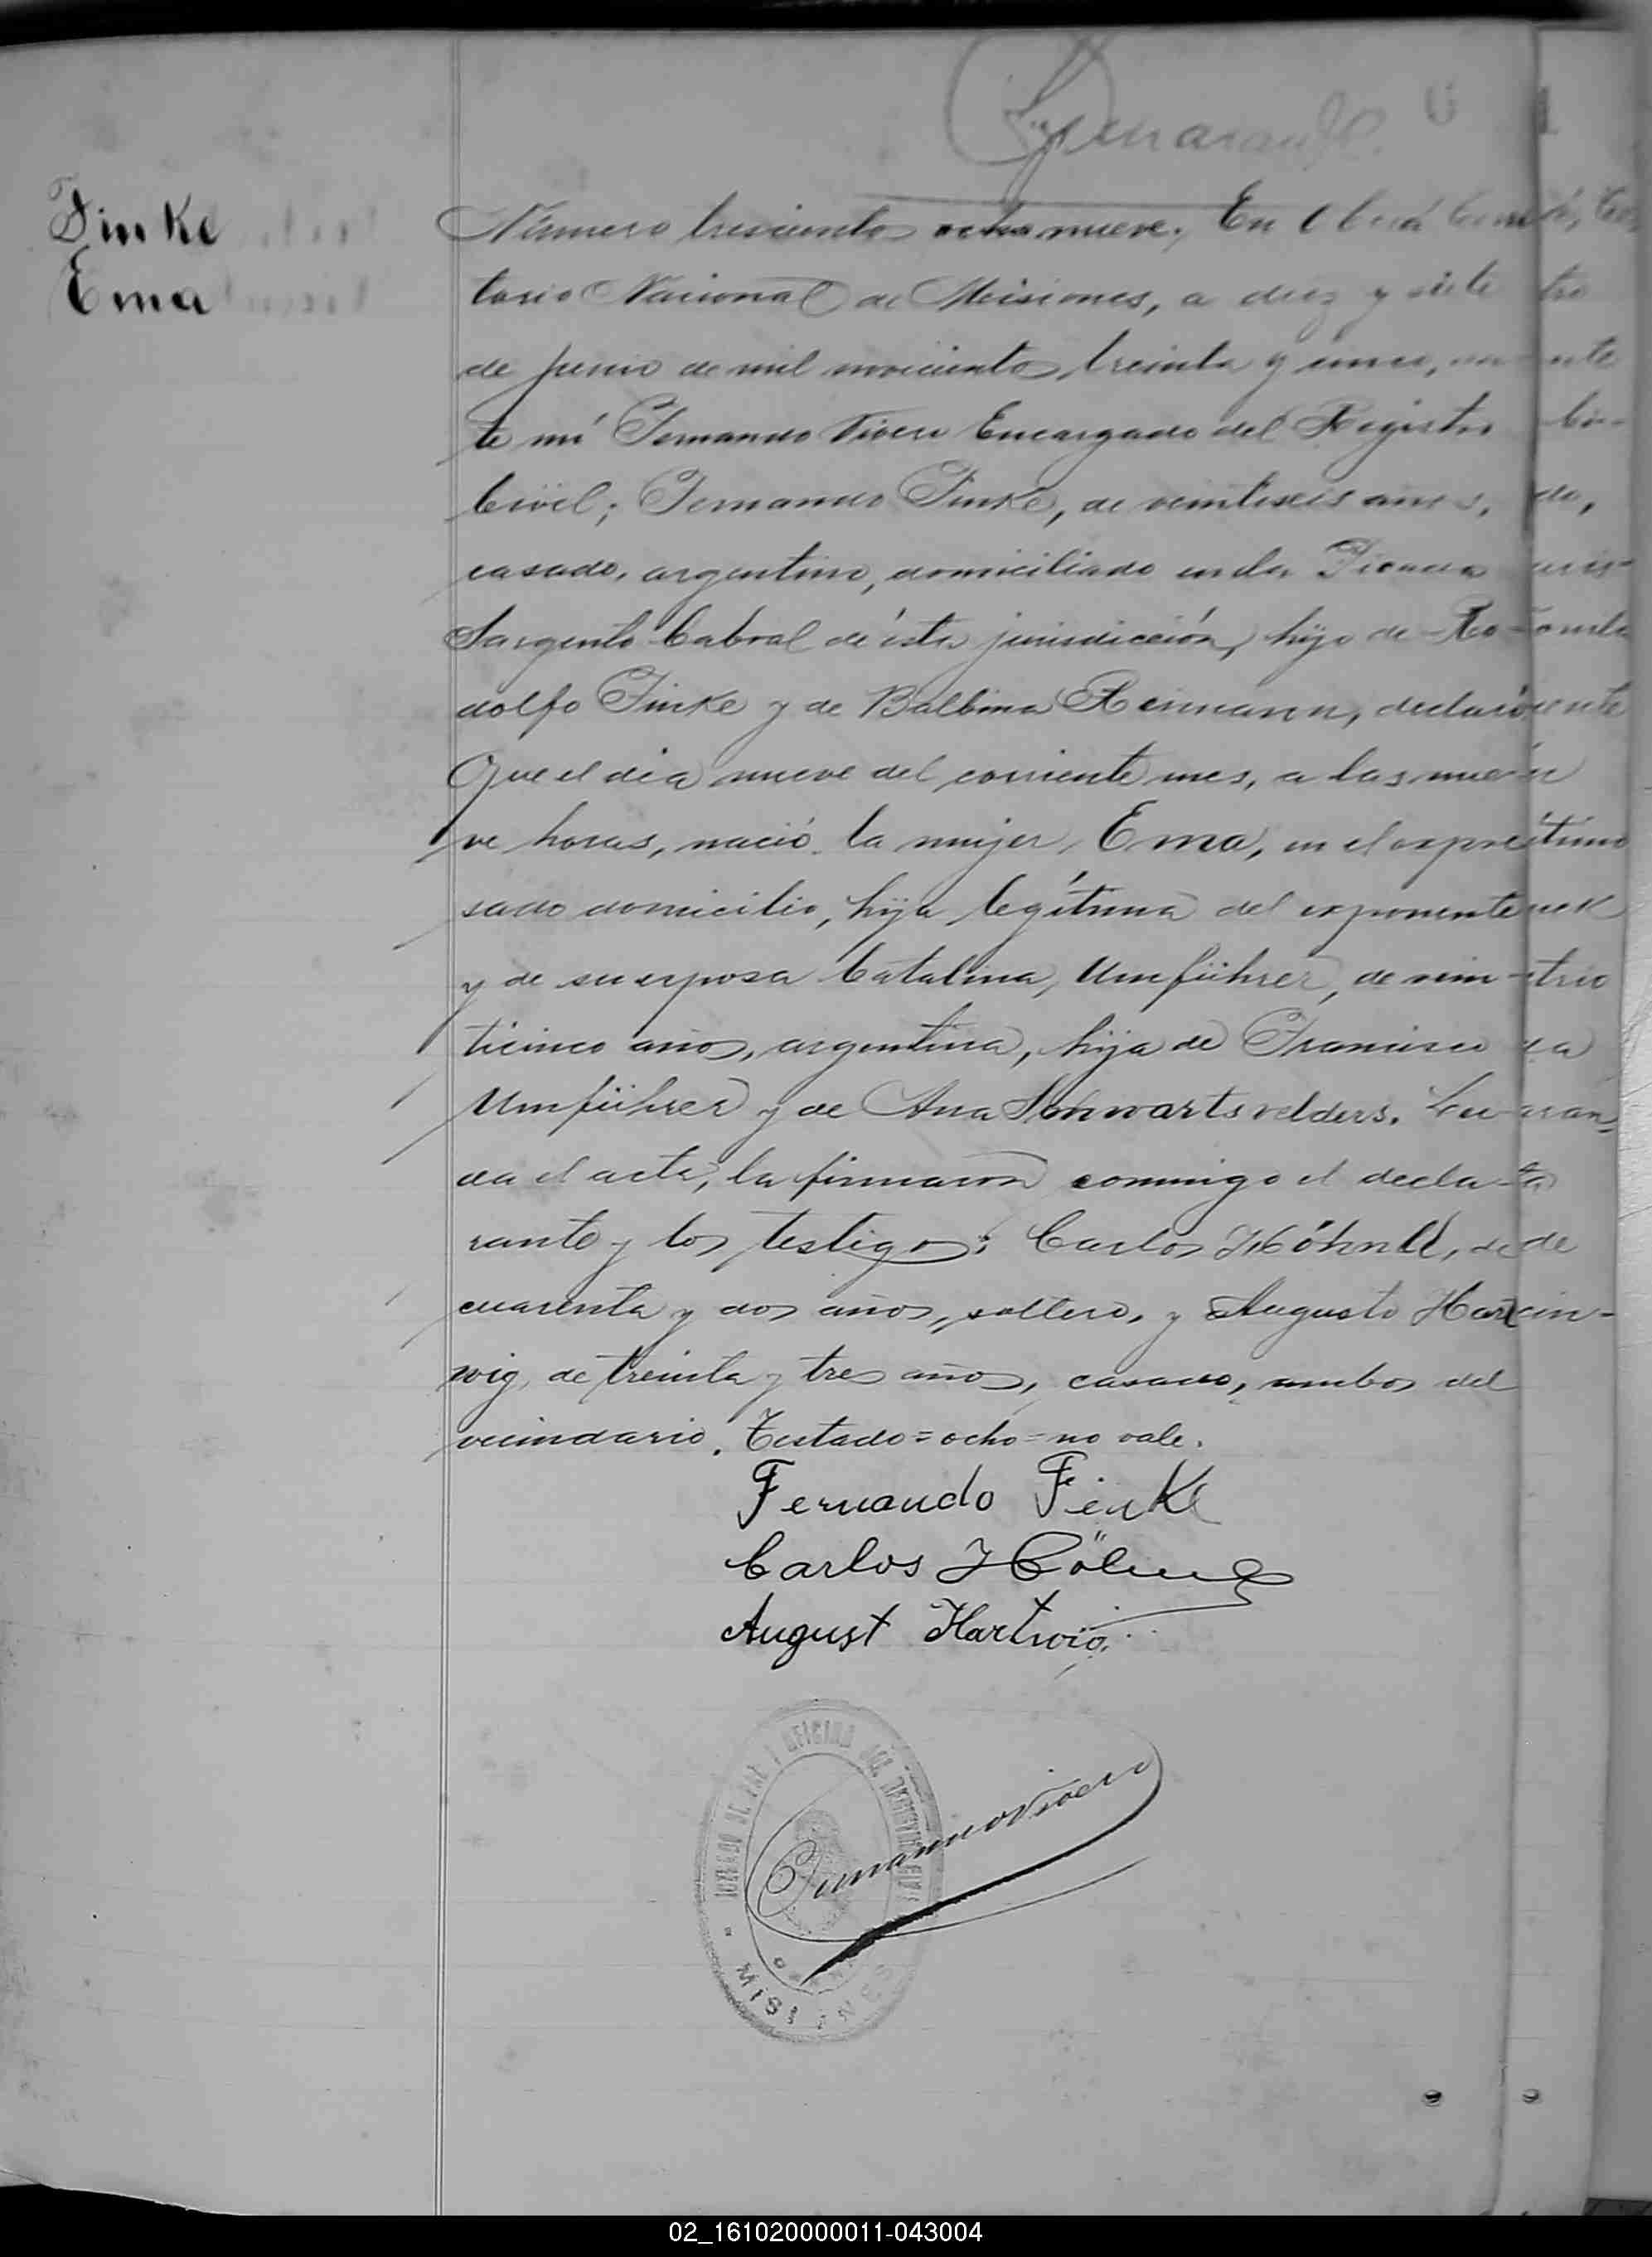 Finke
Ema
Número trescientos ocho nueve. En Oberá, Te-
torio Nacional de Misiones, a diez y siete
de junio de mil novecientos treinta y cinco, an-
te mí Fernando Vivero Encargado del Registro
Civil; Fernando Finke, de veintiseis años,
casado, argentino, domiciliado en la Picada
Sargento Cabral de ésta jurisdicción, hijo de Ro-
dolfo Finke y de Balbina Reimann, declaró:
Que el día nueve del corriente mes, a las nue-
ve horas, nació la mujer, Ema, en el expre-
sado domicilio, hija legítima del exponente
y de su esposa Catalina Umführer, de vein-
ticinco años, argentina, hija de Francisco
Umführer y de Ana Schwartsvelders. Leí-
da el acta, la firmaron conmigo el decla-
rante y los testigos: Carlos Höhnll, de
cuarenta y dos años, soltero, y Augusto Hart-
wig, de treinta y tres años, casado, ambos del
vecindario. Testado=ocho=no vale.
Fernando Finke
Carlos
August Hartwig
JUZGADO DE PAZ Y OFICINA DEL REGISTRO CIVIL
MISIONES
02_161020000011-043004